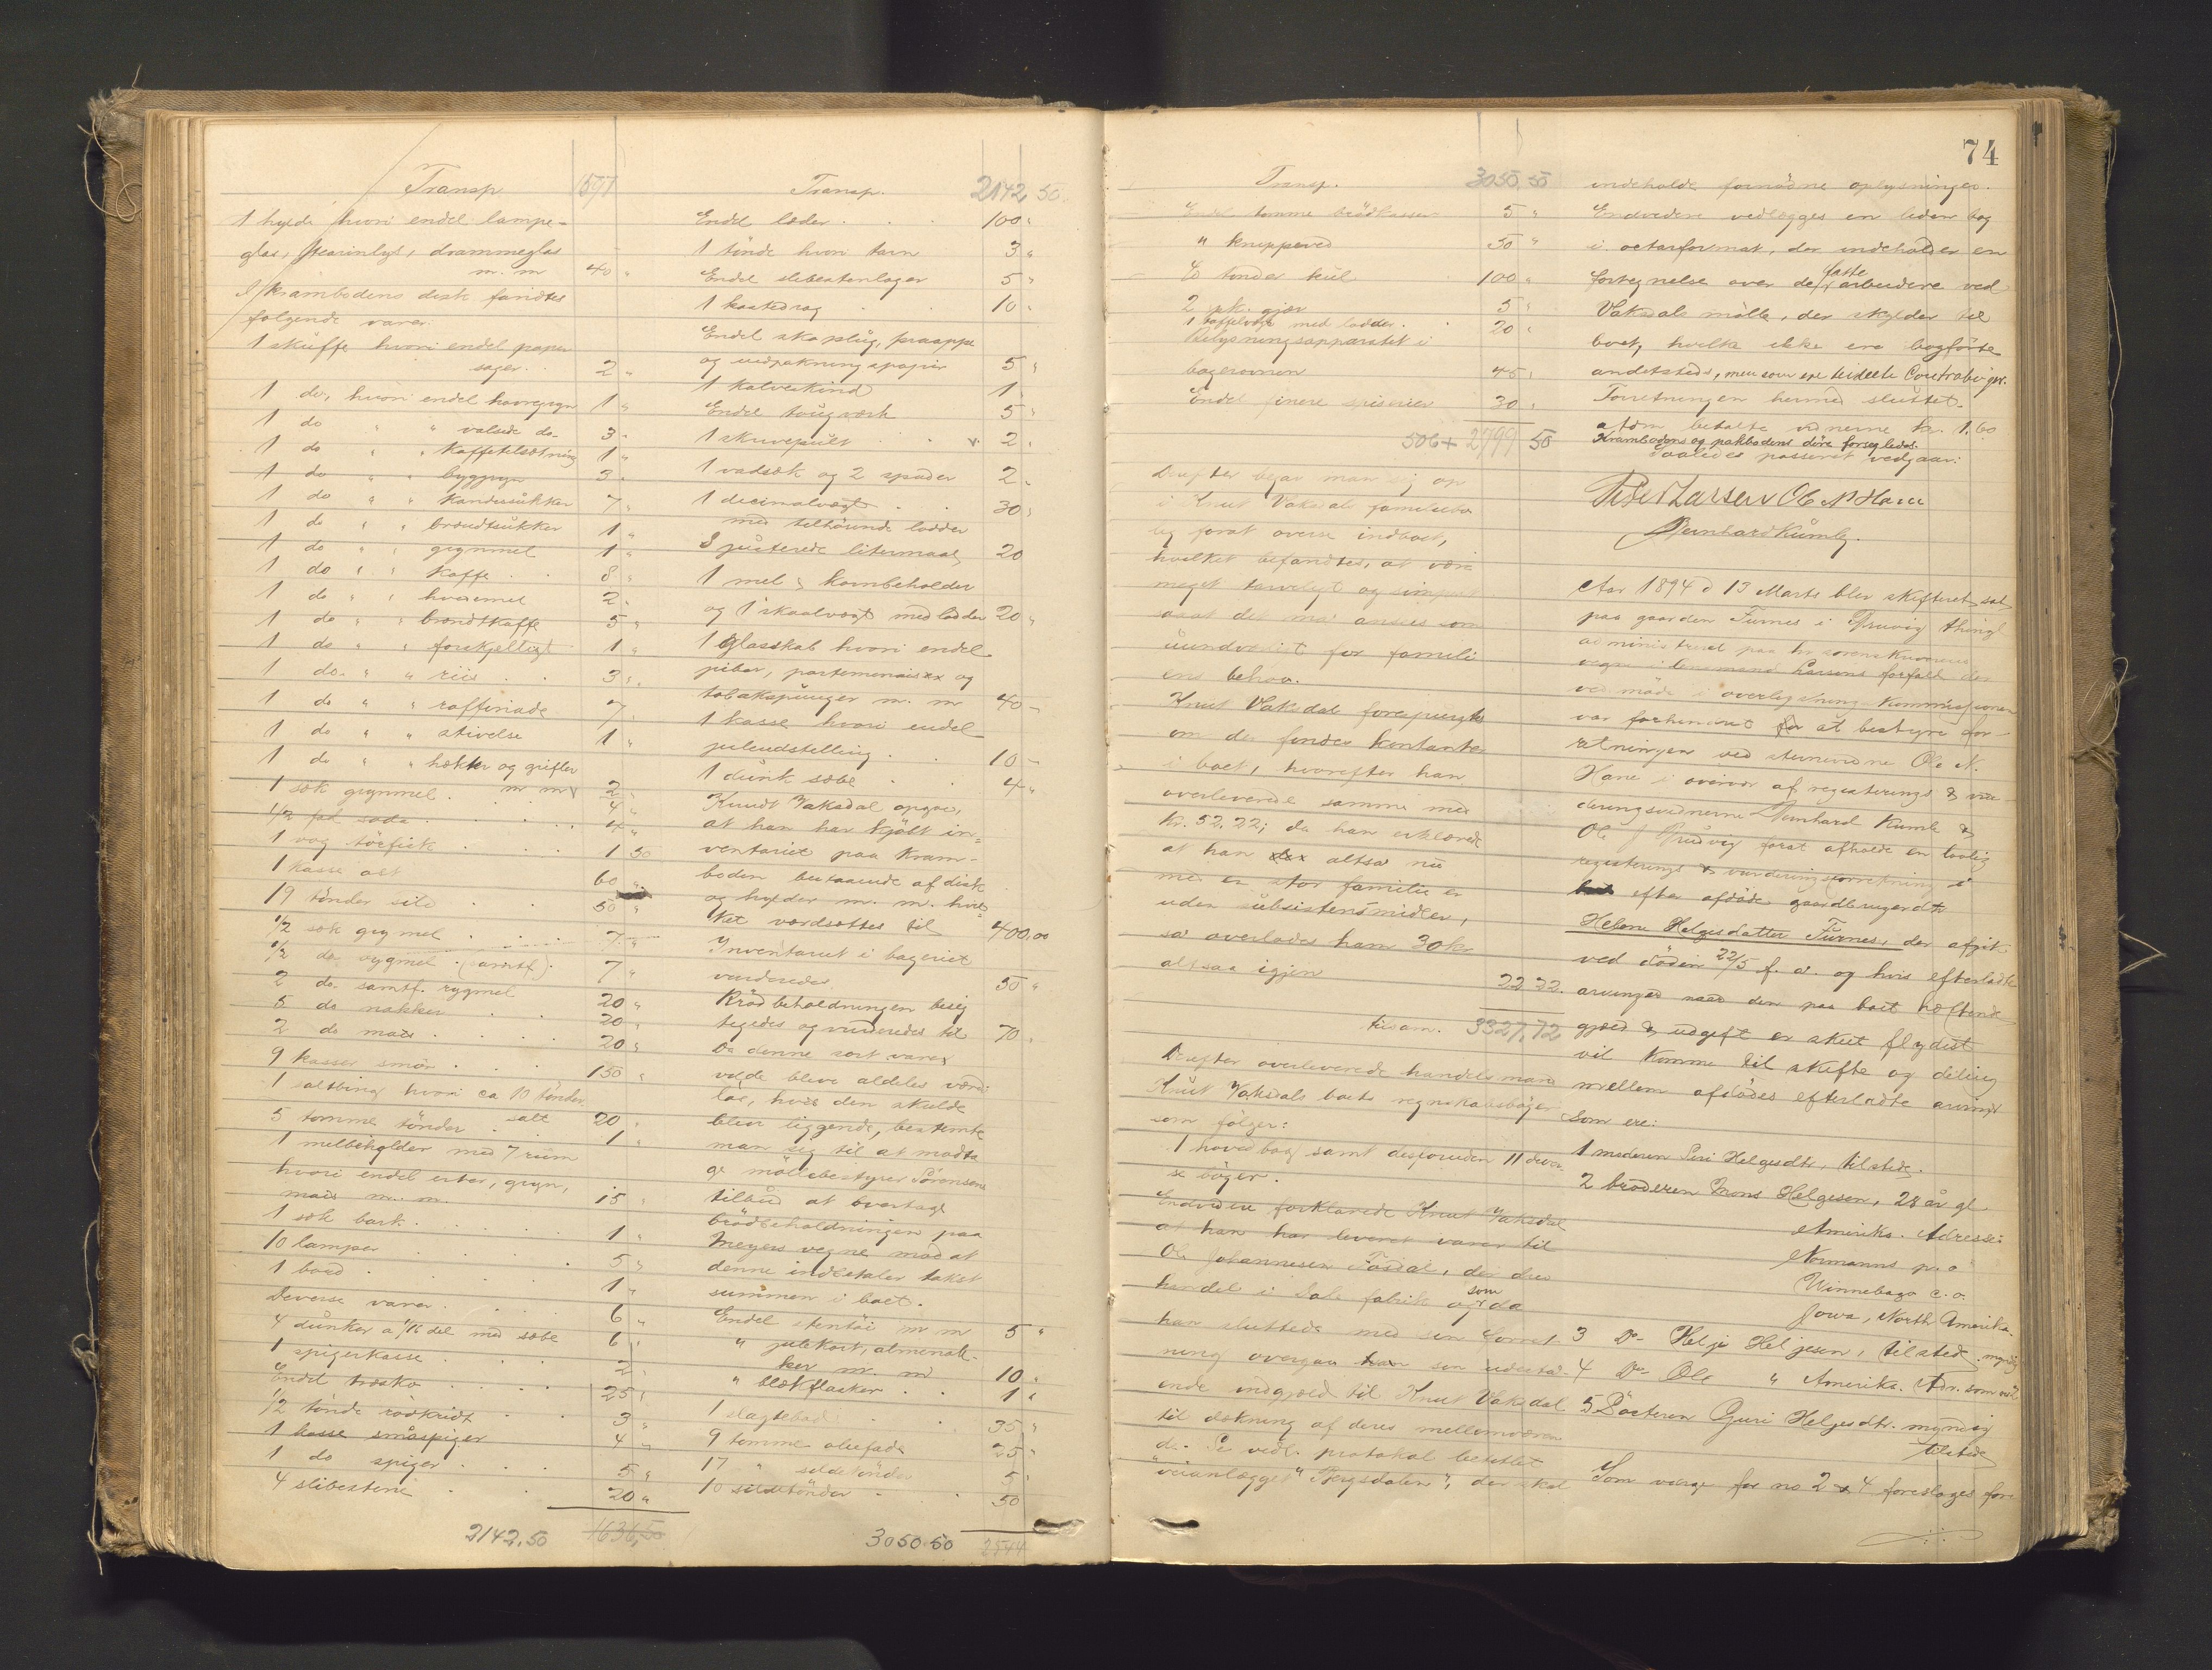 Transp 1597
1 hylde hvori endel lampe-
glas, stearinlys, drammeglas
m. m 40 "
I krambodens disk fandtes
følgende varer:
1 skuffe hvori endel papir
sager. 2 "
1 do, hvori endel havregryn 1 "
1 do " " valsede do- 3 "
1 do " " kaffetilsætning 1 "
1 do " " byggryn 3 "
1 do " " kandissukker 7 "
1 do " " brændtsukker 1 "
1 do " " grynmel 1 "
1 do " " kaffe 8 "
1 do " " hvedemel 2 "
1 do " " brændtkaffe 5 "
1 do " " forskjelligt 1 "
1 do " " riis 3 "
1 do " " raffinade 7 "
1 do " " stivelse 1 "
1 do " " hækter og grifler
m m 2 "
1 sæk grynmel 4 "
1/2 fad soda 4 "
1 vog törfisk 1 50
1 kasse ost 60 "
19 tönder sild 50 "
1/2 sæk grynmel 7 "
1/2 do rygmel 7 "
2 do samf. rygmel 20 "
5 do nakker 20 "
2 do mais 20 "
9 kasser smör 150 "
1 saltbing hvori ca 10 tönder
salt 20 "
5 tomme tönder 1 "
1 melbeholder med 7 rum
hvori endel erter, gryn,
mais m. m. 15 "
1 sæk bark 1 "
10 lamper 5 "
1 bord 1 "
Deverse varer 6 "
4 dunker a 1/16 del med sæbe 6 "
1 spigerkasse 2 "
Endel træsko 25 "
1/2 tönde rödkridt 3 "
1 kasse småspiger 4 "
1 do spiger 5 "
4 slibestene 20 "
2142.50 1636,50
Transp. 2142 50
Endel læder 100 "
1 tönde hvori tarn 3 "
Endel slibestenlager 5 "
1 kastedrag 10 "
Endel skoplug, praappe
og indpakningspapir 5 "
1 kalveskind 1 "
Endel tougværk 5 "
1 skrivepult 2 "
1 vadsæk og 2 spader 2 "
1 decimalvægt
med tilhörende lodder 30 "
8 justerede litermaal 20
1 mel & kornbeholder
og 1 skaalvægt med lodder 20 "
1 Glasskab hvori endel
piber, portemonais og
tobakspunger m. m 40 -
1 kasse hvori endel
juleudstelling 10 -
1 dunk sæbe 4 "
Knudt Vaksdal opgav,
at han har kjöbt in-
ventariet paa kram-
boden bestaaende af disk
og hylder m. m. hvil-
ket værdsættes til 400,00
Inventariet i bageriet
vurderedes 50 "
Brödbeholdningen besig
tigedes og vurderedes til 70 "
Da denne sort varer
vilde bleve aldeles værdi
løs, hvis den skulde
blive liggende, bestemte
man sig til at modta
ge möllebestyrer Sörensens
tilbud at overtage
brödbeholdningen paa
Meyers vegne mod at
denne indbetaler takst
summen i boet.
Endel stentöi m m 5 "
" julekort, almenak-
ker m. m 10 "
" blækflasker 1 "
1 slagtebod 35 "
9 tomme oliefade 25 "
17 " sildetönder 5 "
10 sildetönder 50
3050.50 2544
74
Transp. 3050.50
Endel tomme brödkasser 5 "
" knippeved 50 "
60 tönder kul 100 "
2 pk. gjær 5 "
1 taffelvægt med lodder 20 "
Belysningsapparatet i
bagerovnen 45 "
Endel finere spiserier 30 "
506+ 2799 50
Derefter begav man sig op
i Knut Vaksdals familiebo
lig forat overse indboet,
hvilket befandtes, at være
meget tarveligt og simpelt
saat det må ansees som
uundværligt for famili
ens behov.
Knut Vaksdal forespurgtes
om der findes kontanter
i boet, hvorefter han
overleverede samme med
kr. 52.22; da han erklærede
at han altsaa nu
med en stor familie er
uden subsistensmidler,
så overlades ham 30 kr
altsaa igjen 22 22.
tilsam. 3327,72
Derefter overleverede handelsmand
Knut Vaksdals boets regnskabsböger
som fölger:
1 hovedbog samt desforuden 11 diver
se böger.
Endvidere forklarede Knut Vaksdal
at han har leveret varer til
Ole Johannesen Fosdal, der drev
handel i Dale fabrik og som da
han sluttede med sin forret
ning overgav sin udestaa-
ende indgjæld til Knut Vaksdal
til dækning af deres mellemværen
de. Se vedl. protokal betitlet
"veianlægget Bergsdalen", der skal
indeholde fornödne oplysninger.
Endvidere vedlægges en liden bog
i octavformat, der indeholder en
fortegnelse over de faste arbeidere ved
Vaksdals mölle, der skylder til
boet, hvilke ikke ere bogförte
andetsteds, men som ere tildelte Contraböger.
Forretningen hermed sluttet.
afdm betalte vidnerne kr. 1.60
Krambodens og pakbodens döre forsegledes.
Saaledes passeret vedgaar:
Peder Larsen Ole N Hane
Bernhard Kumle.
Aar 1894 d 13 Marts blev skifteret sat
paa gaarden Furnes i Bruvig thingl
administreret paa hr sorenskriverens
vegne i lensmand Larsens forfald der
ved möde i overligningskommissionen
var forhindret for at bestyre for-
retningen ved stevnevidne Ole N.
Hane i overvær af registerings & vur-
deringsvidnerne Bernhard Kumle &
Ole J Bruvig forat afholde en lovlig
registerings & vurderingsforretning i
boet efter afdöde gaardbrugerdtr
Helene Helgesdatter Furnes, der afgik
ved döden 22/5 f. a. og hvis efterladte
arvinger naar den paa boet heftende
gjæld & udgift er skeet flydest
vil komme til skifte og deling
mellem afdödes efterladte arvinger
som ere:
1 moderen Siri Helgesdtr, tilstede.
2 broderen Mons Helgesen, 28 år gl
Amerika. Adresse:
Normanns p. o
Winnebago c. o.
Jowa, North Amerika.
3 Do- Helje Heljesen, tilstede. myndig
4 Do- Ole " Amerika. Adr. som no 2
5 Sösteren Guri Heljesdtr. myndig
tilstede
Som værge for no 2 & 4 foreslages fore